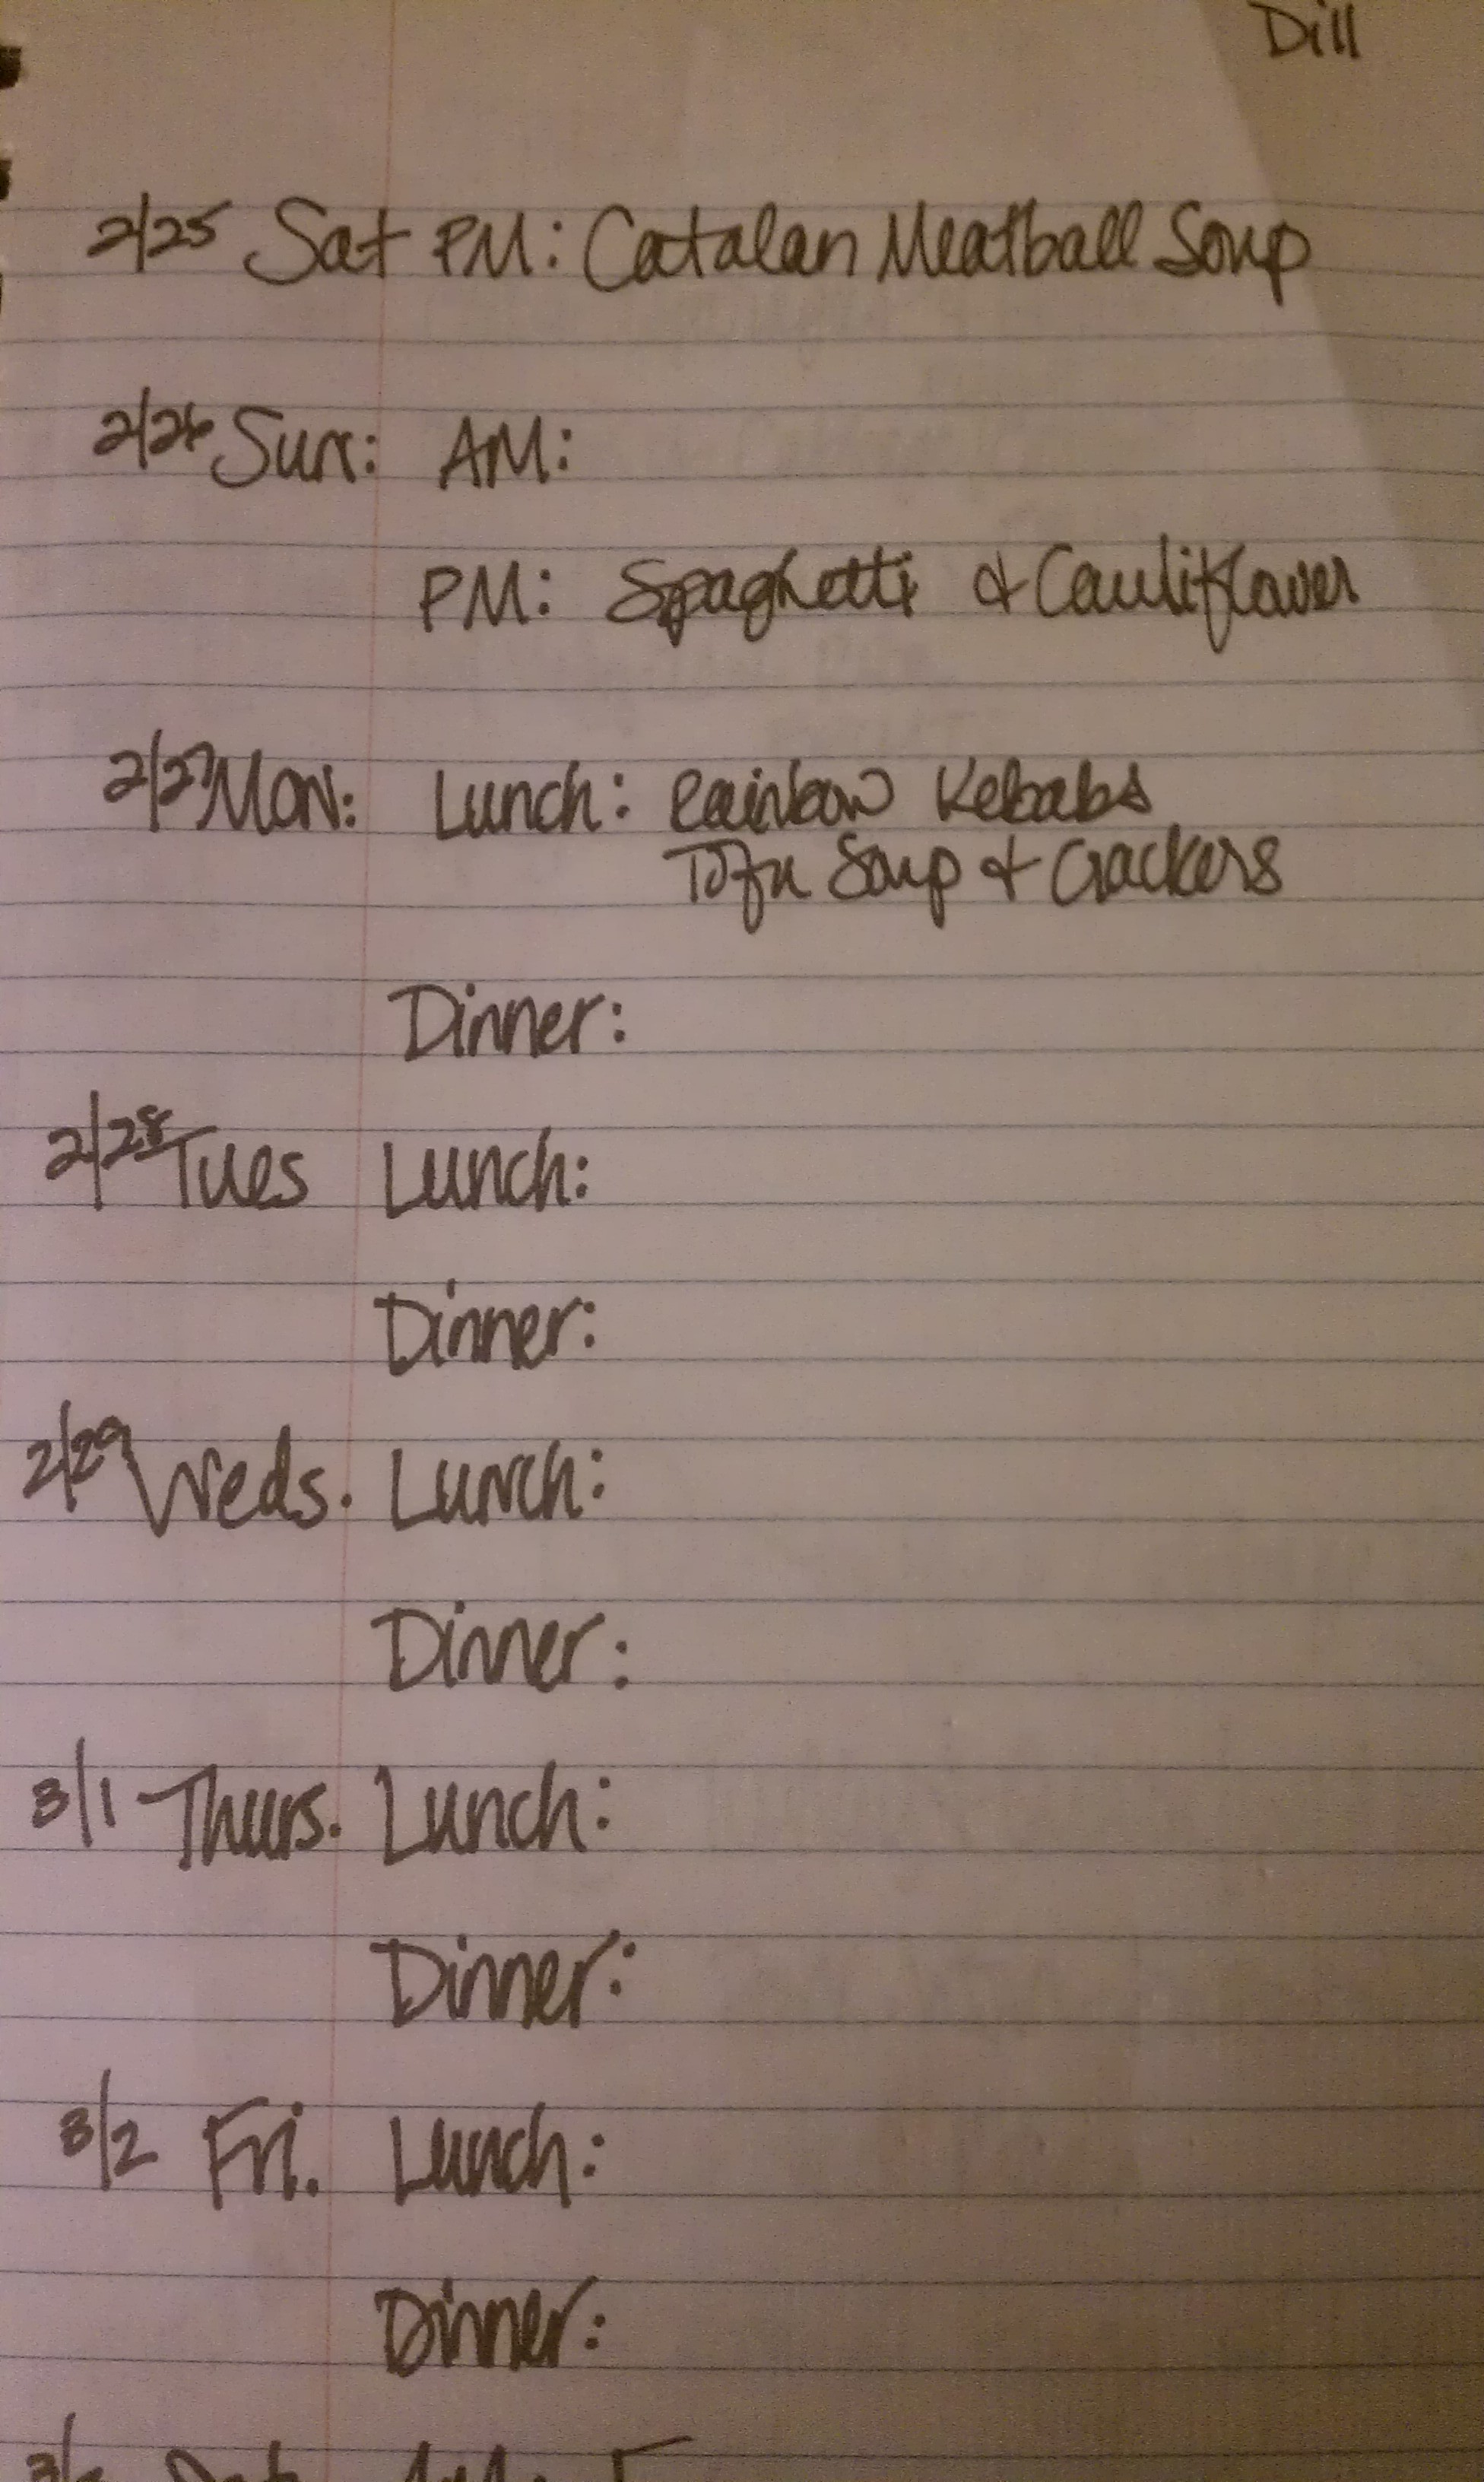 Dill
2/25 Sat PM: Catalan Meatball Soup
2/26 Sun: AM:
PM: Spaghetti & Cauliflower
2/27 Mon: Lunch: Rainbow Kebabs
Tofu Soup & Crackers
Dinner:
2/28 Tues Lunch:
Dinner:
2/29 Weds. Lunch:
Dinner:
3/1 Thurs. Lunch:
Dinner:
3/2 Fri. Lunch:
Dinner: